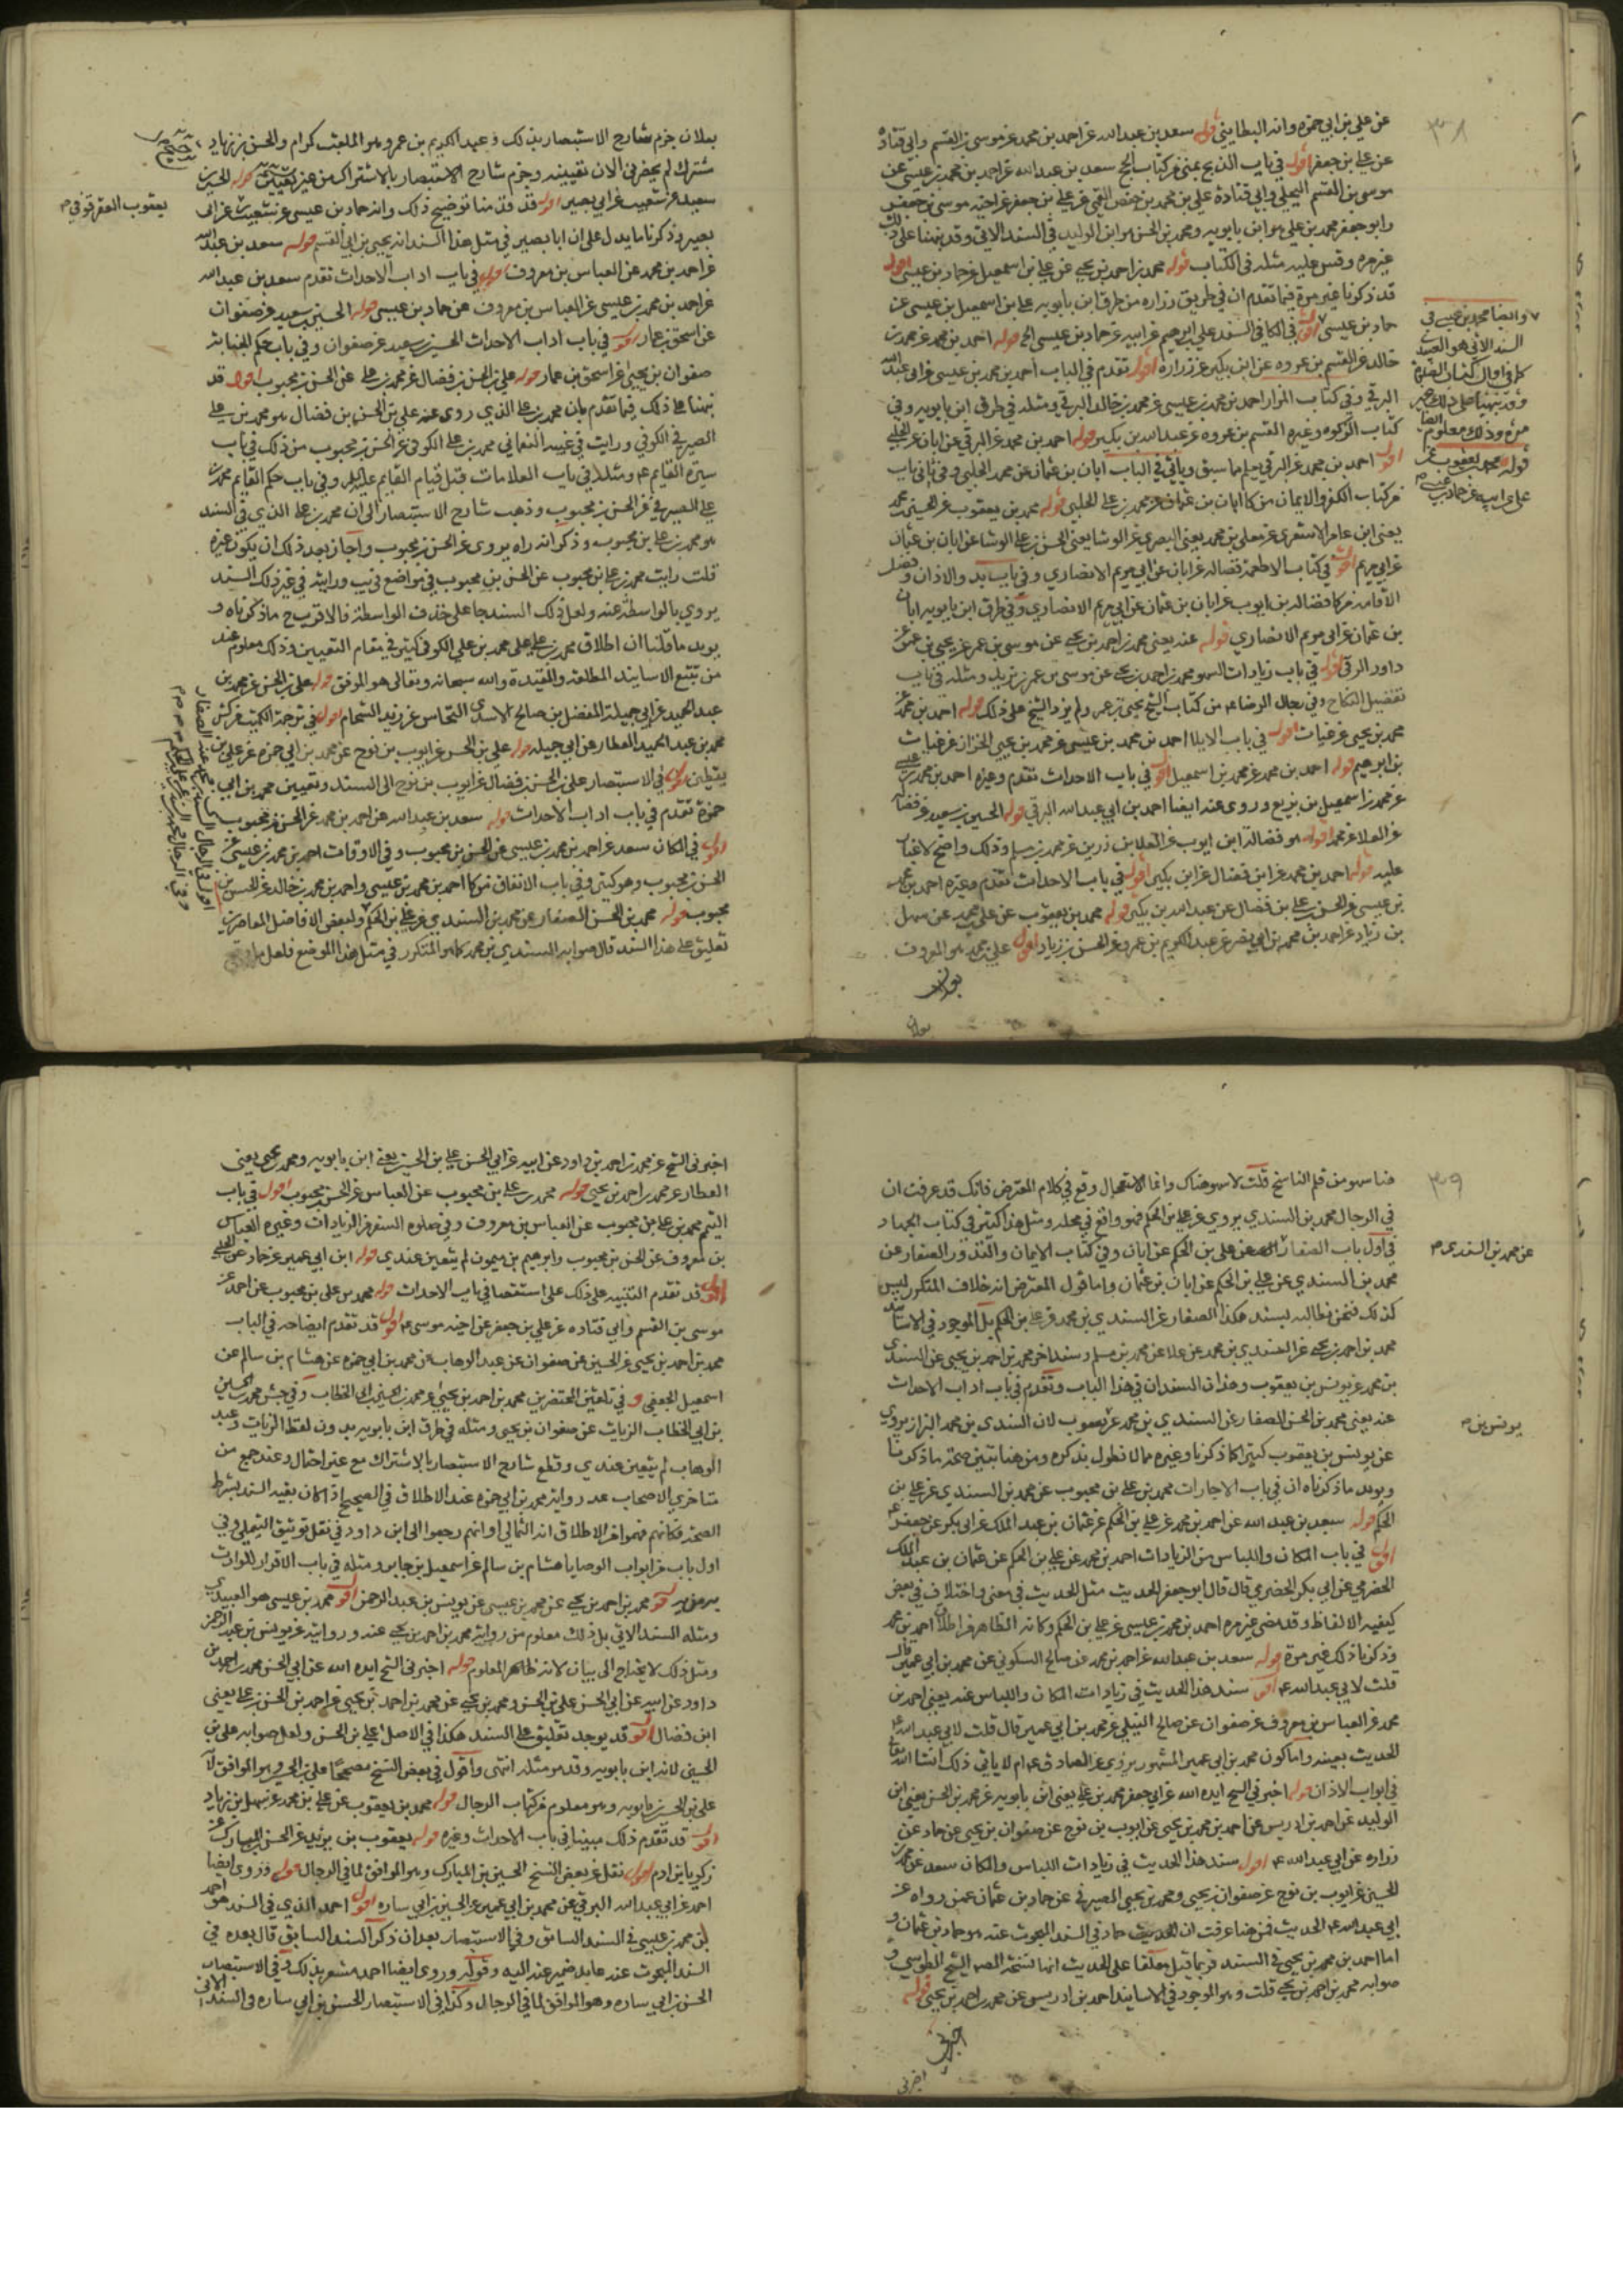 ٣٨
عن علي بن ابي حمزه وانه البطايني قوله سعد بن عبد الله عن احمد بن محمد عن موسى بن القسم وابي قتادة
عن علي بن جعفر اقول في باب الذبح بمنى من كتاب الحج سعد بن عبد الله عن احمد بن محمد بن عيسى عن
موسى بن القسم البجلي وابي قتادة علي بن محمد بن حفص القمي عن علي بن جعفر عن اخيه موسى بن جعفر
وابو جعفر محمد بن علي هو ابن بابويه ومحمد بن الحسن هو ابن الوليد في السند الاتي وقد نبهنا على ذلك
غير مره وقس عليه مثله في الكتاب قوله محمد بن احمد بن يحيى عن علي بن اسمعيل عن حماد بن عيسى اقول
قد ذكرنا غير مرة فيما تقدم ان في طريق زراره من طرق ابن بابويه علي بن اسمعيل بن عيسى عن
حماد بن عيسى اقول في الكافي السند علي بن ابرهيم عن ابيه عن حماد بن عيسى الخ قوله احمد بن محمد عن محمد بن
خالد عن القسم بن عروه عن ابن بكير عن زراره اقول تقدم في الباب احمد بن محمد بن عيسى عن ابي عبد الله
البرقي وفي كتاب المزار احمد بن محمد بن عيسى عن محمد بن خالد البرقي ومثله في طرق ابن بابويه وفي
كتاب الزكوه وغيره القسم بن عروه عن عبد الله بن بكير قوله احمد بن محمد عن البرقي عن ابان عن الحلبي
اقول احمد بن محمد عن البرقي يعلم ما سبق وياتي في الباب ابان بن عثمان عن محمد الحلبي وفي ثاني باب
من كتاب الكفر والايمان من كا ابان بن عثمان عن محمد بن علي الحلبي قوله محمد بن يعقوب عن الحسين بن محمد
يعني ابن عامر الاشعري عن معلى بن محمد يعني البصري عن الوشا يعني الحسن بن علي الوشا عن ابان بن عثمان
عن ابي مريم اقول في كتاب الاطعمة فضاله عن ابان عن ابي مريم الانصاري وفي باب بدو الاذان وفضل
الاقامه من كا فضاله بن ايوب عن ابان بن عثمان عن ابي مريم الانصاري وفي طرق ابن بابويه ابان
بن عثمان عن ابي مريم الانصاري قوله عنه يعني محمد بن احمد بن يحيى عن موسى بن عمر عن يحيى بن عمر عن
داود الرقي اقول في باب زيادات السهو محمد بن احمد بن يحيى عن موسى بن عمر بن يزيد ومثله في باب
تفضيل النكاح وفي رجال الرضا ع من كتاب الشيخ يحيى بن عمر ولم يزد الشيخ على ذلك قوله احمد بن محمد عن
محمد بن يحيى عن غياث اقول في باب الايلا احمد بن محمد بن عيسى عن محمد بن يحيى الخزاز عن غياث
بن ابرهيم قوله احمد بن محمد عن محمد بن اسمعيل اقول في باب الاحداث تقدم وغيره احمد بن محمد بن عيسى
عن محمد بن اسمعيل بن بزيع وروى عنه ايضا احمد بن ابي عبد الله البرقي قوله الحسين بن سعيد عن فضاله
عن العلا عن محمد اقول هو فضالة ابن ايوب عن العلا بن رزين عن محمد بن مسلم وذلك واضح لا غبار
عليه قوله احمد بن محمد عن ابن فضال عن ابن بكير اقول في باب الاحداث تقدم وغيره احمد بن محمد
بن عيسى عن الحسن بن علي بن فضال عن عبد الله بن بكير قوله محمد بن يعقوب عن علي بن محمد عن سهل
بن زياد عن احمد بن محمد بن ابي نصر عن عبد الكريم بن عمرو عن الحسن بن زياد اقول علي بن محمد هو المعروف
بعلان
وايضا محمد بن عيسى في
السند الاتي هو العبيدي
كما في اوايل كتاب الصلوة
وقد نبهنا على ذلك غير
مرة وذلك معلوم ايضا
قوله محمد بن يعقوب عن
علي عن ابيه عن حماد بن عيسى م
بعلان جزم شارح الاستبصار بذلك وعبد الكريم بن عمرو هو الملقب كرام والحسن بن زياد
مشترك لم يحضرني الان تعيينه وجزم شارح الاستبصار بالاشتراك من غير تعيين قوله الحسين
سعيد عن شعيب عن ابي بصير اقول قد قدمنا توضيح ذلك وانه حماد بن عيسى عن شعيب عن ابي
بصير وذكرنا ما يدل على ان ابا بصير في مثل هذا السند انه يحيى بن ابي القسم قوله سعد بن عبد الله
عن احمد بن محمد عن العباس بن معروف اقول في باب اداب الاحداث تقدم سعد بن عبد الله
عن احمد بن محمد بن عيسى عن العباس بن معروف عن حماد بن عيسى قوله الحسين بن سعيد عن صفوان
عن اسحق بن عمار اقول في باب اداب الاحداث الحسين بن سعيد عن صفوان وفي باب حكم الجنابة
صفوان بن يحيى عن اسحق بن عمار قوله علي بن الحسن بن فضال عن محمد بن علي عن الحسن بن محبوب اقول قد
نبهنا على ذلك فيما تقدم بان محمد بن علي الذي روى عنه علي بن الحسن بن فضال هو محمد بن علي
الصيرفي الكوفي ورايت في غيبة النعماني محمد بن علي الكوفي عن الحسن بن محبوب من ذلك في باب
سيرة القايم ع ومثله في باب العلامات قبل قيام القايم عليه السلام وفي باب حكم القايم محمد بن
علي الصيرفي عن الحسن بن محبوب وذهب شارح الاستبصار الى ان محمد بن علي الذي في السند
هو محمد بن علي بن محبوب وذكر انه راه يروي عن الحسن بن محبوب واجاز بعد ذلك ان يكون غيره
قلت رايت محمد بن علي بن محبوب عن الحسن بن محبوب في مواضع في يب ورايته في غير ذلك السند
يروي بالواسطة عنه ولعل ذلك السند جا على حذف الواسطة فالاقرب ح ما ذكرناه و
يويد ما قلنا ان اطلاق محمد بن علي على محمد بن علي الكوفي كثير في مقام التعيين وذلك معلوم عند
من تتبع الاسانيد المطلقه والمقيدة والله سبحانه وتعالى هو الموفق قوله علي بن الحسن عن محمد بن
عبد الحميد عن ابي جميلة المفضل بن صالح الاسدي النخاس عن زيد الشحام اقول في ترجمة الكميت من كش
محمد بن عبد الحميد العطار عن ابي جميله قوله علي بن الحسن عن ايوب بن نوح عن محمد بن ابي حمزه عن علي بن
يقطين اقول في الاستبصار علي بن الحسن بن فضال عن ايوب بن نوح الى السند وتعيين محمد بن ابي
حمزة تقدم في باب اداب الاحداث قوله سعد بن عبد الله عن احمد بن محمد عن الحسن بن محبوب
اقول في المكان سعد عن احمد بن محمد بن عيسى عن الحسن بن محبوب وفي الاوقات احمد بن محمد بن عيسى عن
الحسن بن محبوب وهو كثير وفي باب الانفاق من كا احمد بن محمد بن عيسى واحمد بن محمد بن خالد عن الحسن بن
محبوب قوله محمد بن الحسن الصفار عن محمد بن السندي عن علي بن الحكم ولبعض الافاضل المعاصرين
تعليق على هذا السند قال صوابه السندي بن محمد كما هو المتكرر في مثل هذا الموضع فلعل ما
يعقوب العقرقوفي م
٣٩
هنا سهو من قلم الناسخ قلت لا سهو هناك وانما الاستعجال وقع في كلام المعترض فانك قد عرفت ان
في الرجال محمد بن السندي يروي عن علي بن الحكم فهو واقع في محله ومثل هذا كثير في كتاب الجهاد
في اول باب الصفار عن علي بن الحكم عن ابان وفي كتاب الايمان والنذور الصفار عن
محمد بن السندي عن علي بن الحكم عن ابان بن عثمان واما قول المعترض انه خلاف المتكرر ليس
كذلك فنحن نطالبه بسند هكذا الصفار عن السندي بن محمد عن علي بن الحكم بل الموجود في الاسانيد
محمد بن احمد بن يحيى عن السندي بن محمد عن علا عن محمد بن مسلم وسند اخر محمد بن احمد بن يحيى عن السندي
بن محمد عن يونس بن يعقوب وهذان السندان في هذا الباب وتقدم في باب اداب الاحداث
عنه يعني محمد بن الحسن الصفار عن السندي بن محمد عن يعقوب لان السندي بن محمد البزاز يروي
عن يونس بن يعقوب كثيرا كما ذكرنا وغيره مما لا نطول بذكره ومن هنا تبين صحة ما ذكرنا
ويويد ما ذكرناه ان في باب الاجارات محمد بن علي بن محبوب عن محمد بن السندي عن علي بن
الحكم قوله سعد بن عبد الله عن احمد بن محمد عن علي بن الحكم عن عثمان بن عبد الملك عن ابي بكر عن جعفر ع
اقول في باب المكان واللباس من الزيادات احمد بن محمد عن علي بن الحكم عن عثمان بن عبد الملك
الحضرمي عن ابي بكر الحضرمي قال قال ابو جعفر الحديث مثل الحديث في المعنى واختلاف في بعض
كيفيه الالفاظ وقد مضى غير مره احمد بن محمد بن عيسى عن علي بن الحكم وكانه الظاهر من اطلاق احمد بن محمد
وذكرنا ذلك غير مرة قوله سعد بن عبد الله عن احمد بن محمد عن صالح السكوني عن محمد بن ابي عمير قال
قلت لابي عبد الله ع اقول سند هذا الحديث في زيادات المكان واللباس عنه يعني احمد بن
محمد عن العباس بن معروف عن صفوان عن صالح النيلي عن محمد بن ابي عمير قال قلت لابي عبد الله ع
الحديث بعينه واما كون محمد بن ابي عمير المشهور يروي عن الصادق ع ام لا ياتي ذلك انشا الله تعالى
في ابواب الاذان قوله اخبرني الشيخ ايده الله عن ابي جعفر محمد بن علي يعني ابن بابويه عن محمد بن الحسن يعني ابن
الوليد عن احمد بن ادريس عن احمد بن محمد بن يحيى عن ايوب بن نوح عن صفوان بن يحيى عن حماد عن
زراره عن ابي عبد الله ع اقول سند هذا الحديث في زيادات اللباس والمكان سعد عن محمد بن
الحسين عن ايوب بن نوح عن صفوان بن يحيى ومحمد بن يحيى الصيرفي عن حماد بن عثمان عمن رواه عن
ابي عبد الله ع الحديث فمن هنا عرفت ان الحديث حماد في السند المبحوث عنه هو حماد بن عثمان و
اما احمد بن محمد بن يحيى في السند فربما قيل معلقا على الحديث انها نسخة الاصل الشيخ الطوسي و
صوابه محمد بن احمد بن يحيى قلت وهو الموجود في الاسانيد احمد بن ادريس عن محمد بن احمد بن يحيى قوله
اخبرني
عن محمد بن السندي م
يونس بن م
اخبرني الشيخ عن محمد بن احمد بن داود عن ابيه عن ابي الحسن علي بن الحسين يعني ابن بابويه ومحمد بن يحيى يعني
العطار عن محمد بن احمد بن يحيى قوله محمد بن علي بن محبوب عن العباس عن الحسن بن محبوب اقول في باب
التيمم محمد بن علي بن محبوب عن العباس بن معروف وفي صلوه السفر من الزيادات وغيره العباس
بن معروف عن الحسن بن محبوب وابرهيم بن ميمون لم يتعين عندي قوله ابن ابي عمير عن حماد عن الحلبي
اقول قد تقدم التنبيه على ذلك على استقصا في باب الاحداث قوله محمد بن علي بن محبوب عن احمد عن
موسى بن القسم وابي قتاده عن علي بن جعفر عن اخيه موسى ع اقول قد تقدم ايضاحه في الباب
محمد بن احمد بن يحيى عن الحسين عن صفوان عن عبد الوهاب عن محمد بن ابي حمزه عن هشام بن سالم عن
اسمعيل الجعفي و في تلقين المحتضرين محمد بن احمد بن يحيى عن محمد بن الحسين بن ابي الخطاب وفي جش محمد بن الحسين
بن ابي الخطاب الزيات عن صفوان بن يحيى ومثله في طرق ابن بابويه بدون لفظ الزيات وعبد
الوهاب لم يتعين عندي وقطع شارح الاستبصار بالاشتراك مع غير احتمال وعند جمع من
متاخري الاصحاب عد رواية محمد بن ابي حمزه عند الاطلاق في الصحيح اذا كان بقيه السند بشرط
الصحه فكانهم فهموا من الاطلاق انه الثمالي او انهم رجعوا الى ابن داود في نقل توثيق التيملي وفي
اول باب من ابواب الوصايا هشام بن سالم عن اسمعيل بن جابر ومثله في باب الاقرار للوارث
قوله محمد بن احمد بن يحيى عن محمد بن عيسى عن يونس بن عبد الرحمن اقول محمد بن عيسى هو العبيدي
ومثله السند الاتي بل ذلك معلوم من رواية محمد بن احمد بن يحيى عنه وروايته عن يونس بن عبد الرحمن
ومثل ذلك لا يحتاج الى بيان لانه ظاهر المعلوم قوله اخبرني الشيخ ايده الله عن ابي الحسن محمد بن احمد بن
داود عن ابيه عن ابي الحسن علي بن الحسن ومحمد بن يحيى عن محمد بن احمد بن يحيى عن احمد بن الحسن بن علي يعني
ابن فضال اقول قد يوجد تعليق على السند هكذا في الاصل علي بن الحسن ولعل صوابه علي بن
الحسين لانه ابن بابويه وقد مر مثله انتهى واقول في بعض النسخ مصححا علي بن الحسين وهو الموافق لان
علي بن الحسين بن بابويه وهو معلوم من كتاب الرجال قوله محمد بن يعقوب عن علي بن محمد عن سهل بن زياد
اقول قد تقدم ذلك مبينا في باب الاحداث وغيره قوله يعقوب بن يزيد عن الحسن بن المبارك عن
زكريا بن ادم اقول نقل عن بعض النسخ الحسين بن المبارك وهو الموافق لما في الرجال قوله وروى ايضا
احمد عن ابي عبد الله البرقي عن محمد بن ابي عمير عن الحسين بن ابي ساره اقول احمد الذي في السند هو احمد
بن محمد بن عيسى في السند السابق وفي الاستبصار بعد ان ذكر السند السابق قال بعده في
السند المبحوث عنه عايد ضمير عنه اليه وقوله وروى ايضا احمد مشعر بذلك وفي الاستبصار
الحسن بن ابي ساره وهو الموافق لما في الرجال وكذا في الاستبصار الحسن بن ابي ساره في السند الاتي